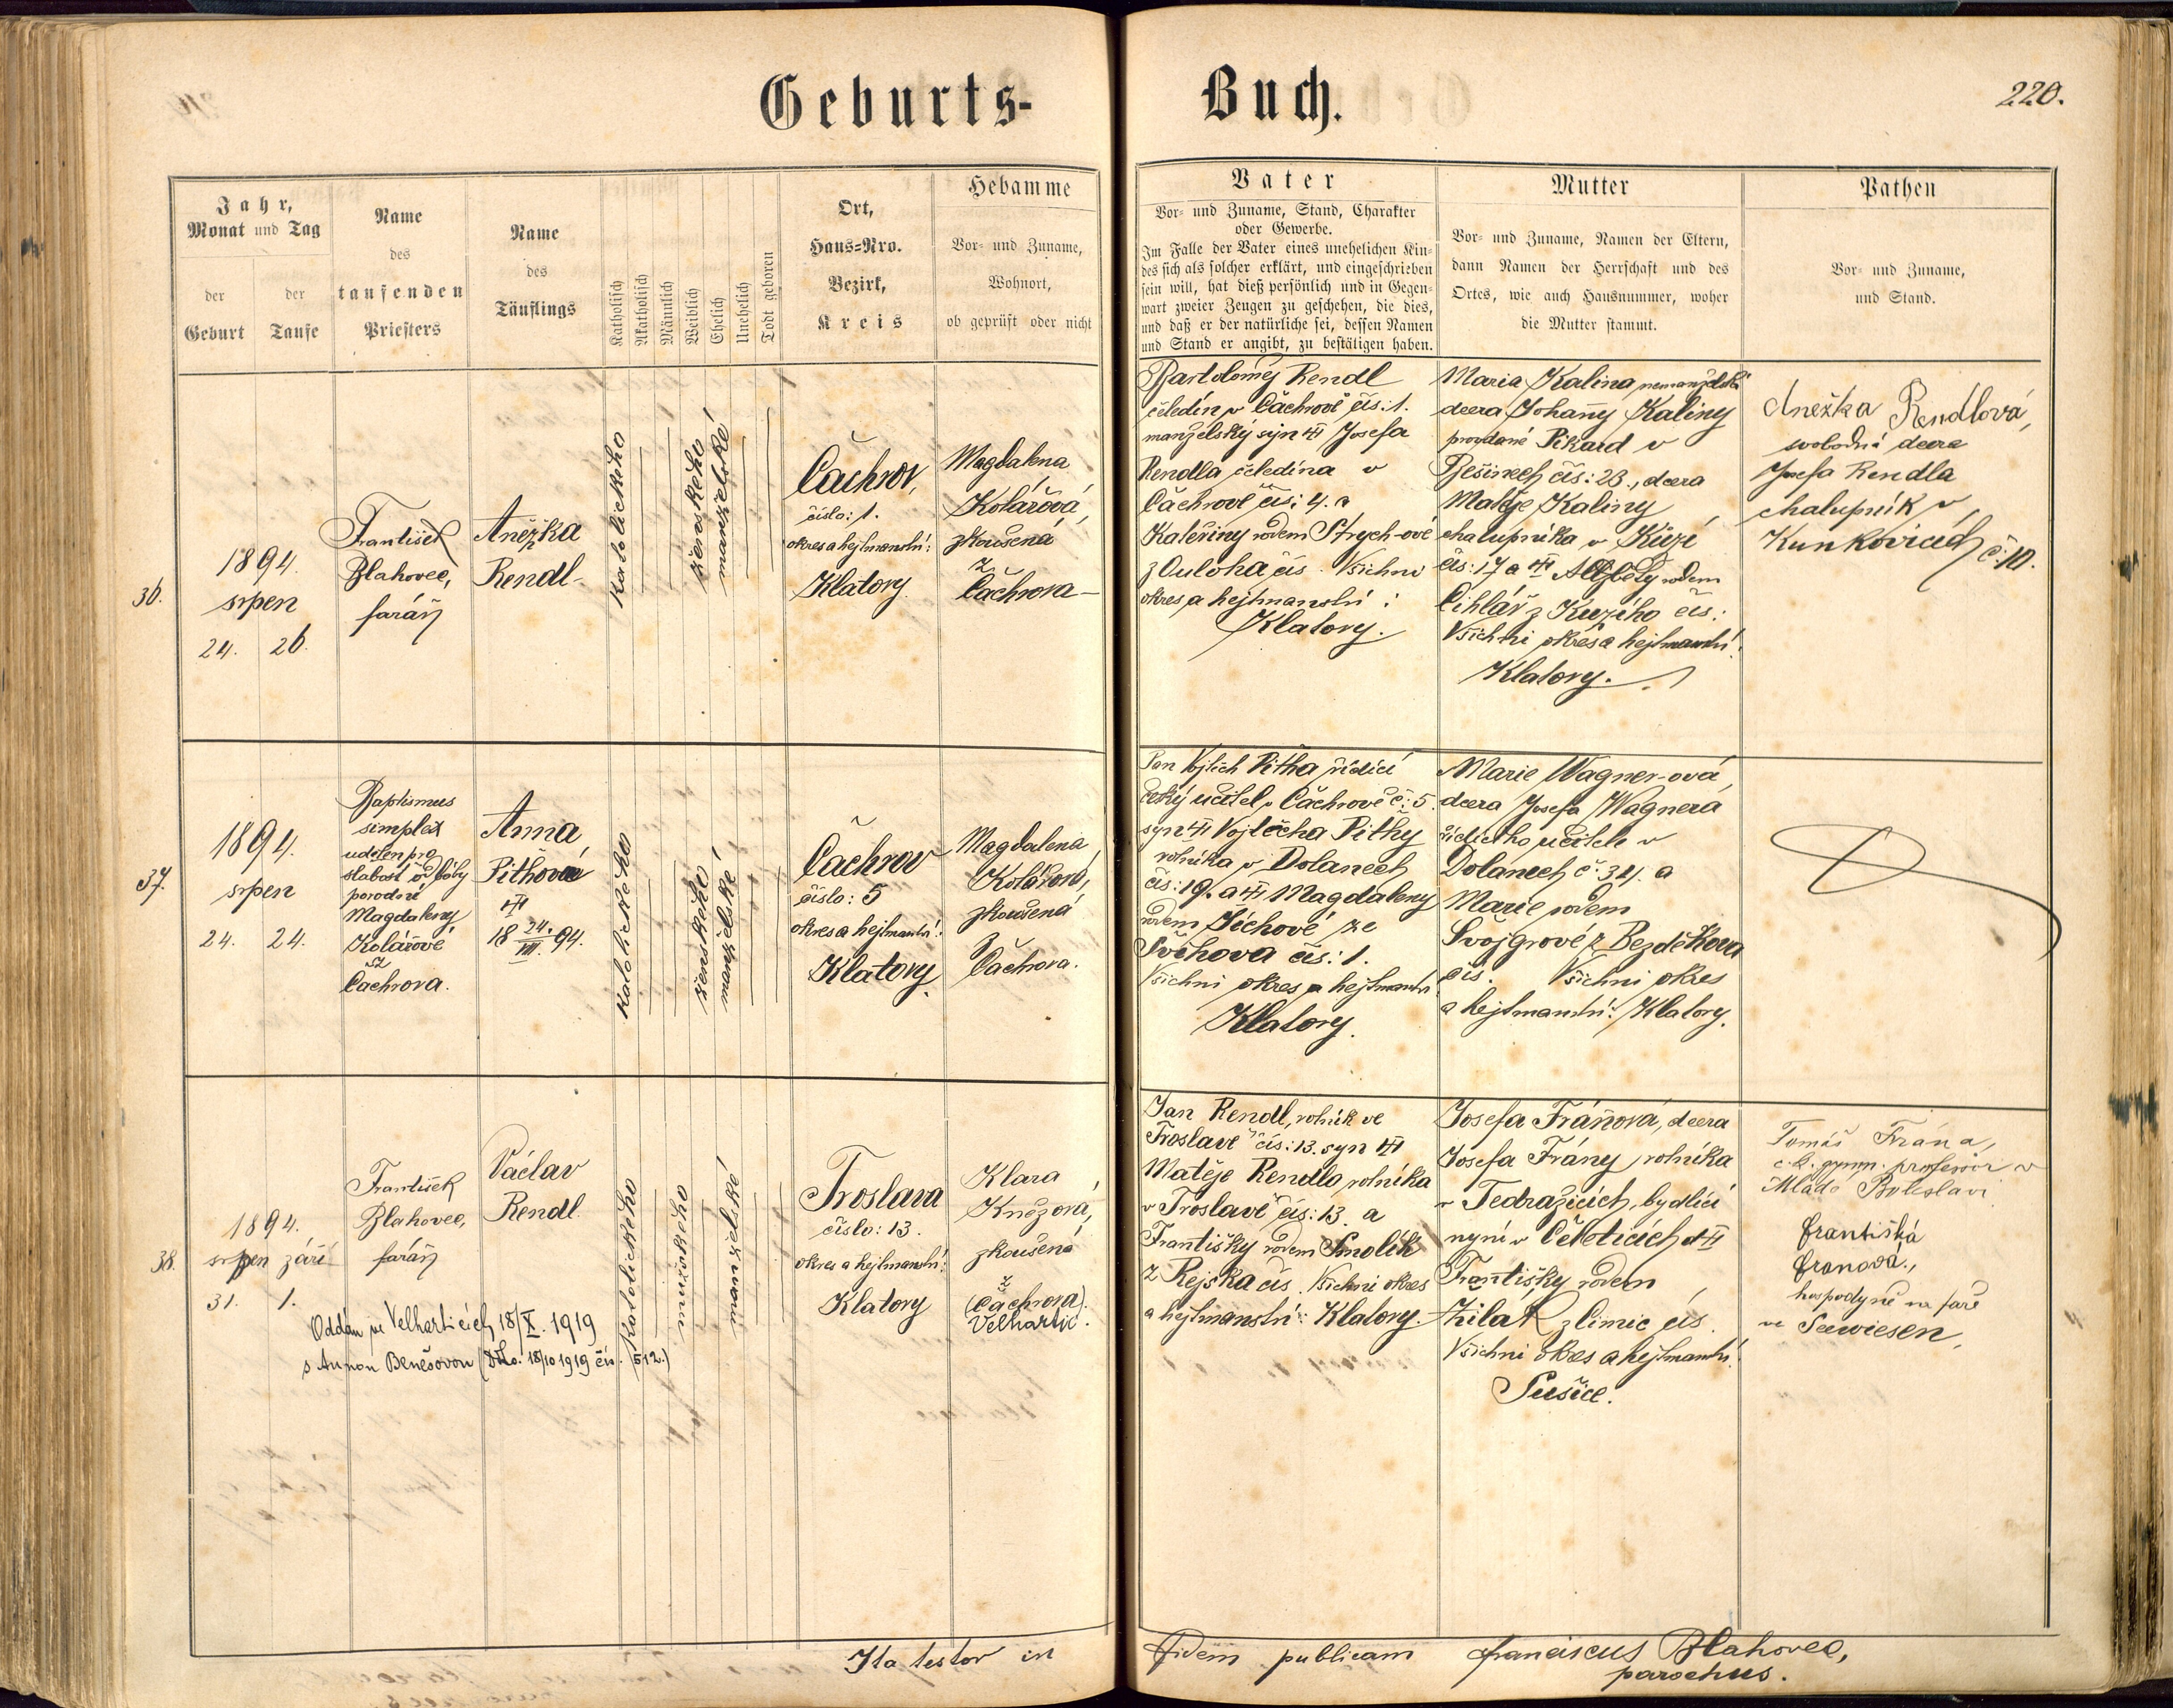 Geburts-
Buch.
220.
Jahr,
Monat und Tag
der
Geburt
der
Taufe
Name
des
taufenden
Priesters
Name
des
Täuflings
Katholisch
Akatholisch
Männlich
Weiblich
Ehelich
Unehelich
Todt geboren
Ort,
Haus-Nro.
Bezirk,
Kreis
Hebamme
Vor- und Zuname,
Wohnort,
ob geprüft oder nicht
Vater
Vor- und Zuname, Stand, Charakter
oder Gewerbe.
Im Falle der Vater eines unehelichen Kin-
des sich als solcher erklärt, und eingeschrieben
sein will, hat dieß persönlich und in Gegen-
wart zweier Zeugen zu geschehen, die dies,
und daß er der natürliche sei, dessen Namen
und Stand er angibt, zu bestätigen haben.
Mutter
Vor- und Zuname, Namen der Eltern,
dann Namen der Herrschaft und des
Ortes, wie auch Hausnummer, woher
die Mutter stammt.
Pathen
Vor- und Zuname,
und Stand.
36.
1894.
srpen
24. 26.
František
Blahovec,
farář
Anežka
Rendl
katolického
ženského
manželské
Čachrov,
číslo: 1.
okres a hejtmanství:
Klatovy.
Magdalena
Kolářová,
zkoušená
z
Čachrova
Bartoloměj Rendl
čeledín v Čachrově čís: 1.
manželský syn Josefa
Rendla čeledína v
Čachrově čís: 4. a
Kateřiny rodem Strych-ové
z Ouloha čís. Všichni
okres a hejtmanství:
Klatovy.
Maria Kalina nemanželská
dcera Johanny Kaliny
provdané Pikard v
Běšinech čís: 23., dcera
Matěje Kaliny
chalupníka v Kůzí
čís: 17 a Alžběty rodem
Cihlář z Kuzího čís:
Všichni okres a hejtmanství:
Klatovy.
Anežka Rendlová,
svobodná dcera
Josefa Rendla
chalupník v
Kunkovicích č. 10.
37.
1894.
srpen
24. 24.
Baptismus
simplex
udělen pro
slabost od báby
porodní
Magdaleny
Kolářové
z
Čachrova.
Anna
Pithová
18 24./VIII. 94.
katolického
ženského
manželské
Čachrov
číslo: 5
okres a hejtmanství:
Klatovy.
Magdalena
Kolářová,
zkoušená
z
Čachrova.
Pan Vojtěch Pitha řídící
český učitel v Čachrově č: 5.
syn Vojtěcha Pithy
rolníka v Dolanech
čís: 19. a Magdaleny
rodem Jíchové ze
Svěhova čís: 1.
Všichni okres a hejtmanství
Klatovy.
Marie Wagner-ová,
dcera Josefa Wagnera
řídícího učitele v
Dolanech č: 34. a
Marie rodem
Svojgrové z Bezděkova
čís. Všichni okres
a hejtmanství: Klatovy.
38.
1894.
srpen září
31. 1.
František
Blahovec,
farář
Václav
Rendl.
katolického
mužského
manželské
Froslava
číslo: 13.
okres a hejtmanství:
Klatovy
Klara
Kněžová,
zkoušená
z
(Čachrova).
Velhartic.
Oddán ve Velharticích 18/X. 1919
s Annou Benešovou (Dto. 18/10 1919 čís. 512.)
Jan Rendl, rolník ve
Froslavě čís: 13. syn
Matěje Rendla rolníka
v Froslavě čís: 13. a
Františky rodem Smolík
z Rejska čís. Všichni okres
a hejtmanství: Klatovy.
Josefa Fránová, dcera
Josefa Frány rolníka
v Tedražicích, bydlící
nyní v Čeletících a
Františky rodem
Žilák z Limic čís.
Všichni okres a hejtmanství:
Sušice.
Tomáš Frána,
c. k. gymn. professor v
Mladé Boleslavi
Františka
Franová,
hospodyně na faře
ve Seewiesen,
Ita testor in fidem publicam Franciscus Blahovec,
parochus.